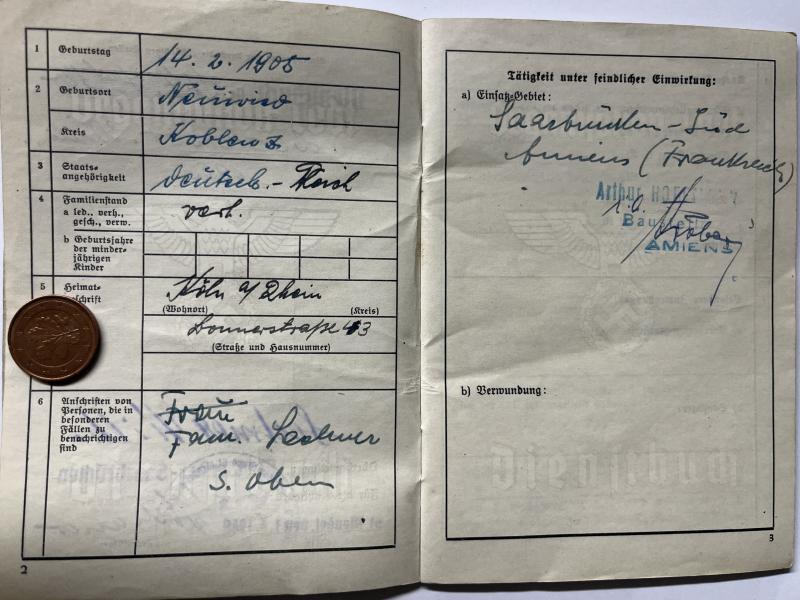 1 Geburtstag 14. 2. 1905
2 Geburtsort Neuwied
Kreis Koblenz
3 Staats-
angehörigkeit deutsch. - Reich
4 Familienstand
a led., verh., verh.
gesch., verw.
b Geburtsjahre
der minder-
jährigen
Kinder
5 Heimat-
schrift Köln a/Rhein
(Wohnort) (Kreis)
Donnerstraße 43
(Straße und Hausnummer)
6 Anschriften von
Personen, die in
besonderen
Fällen zu
benachrichtigen
sind
Frau
Fam.
s. oben
2
Tätigkeit unter feindlicher Einwirkung:
a) Einsatz-Gebiet:
Saarbrücken - Süd
Amiens (Frankreich)
Arthur
AMIENS
b) Verwundung:
3